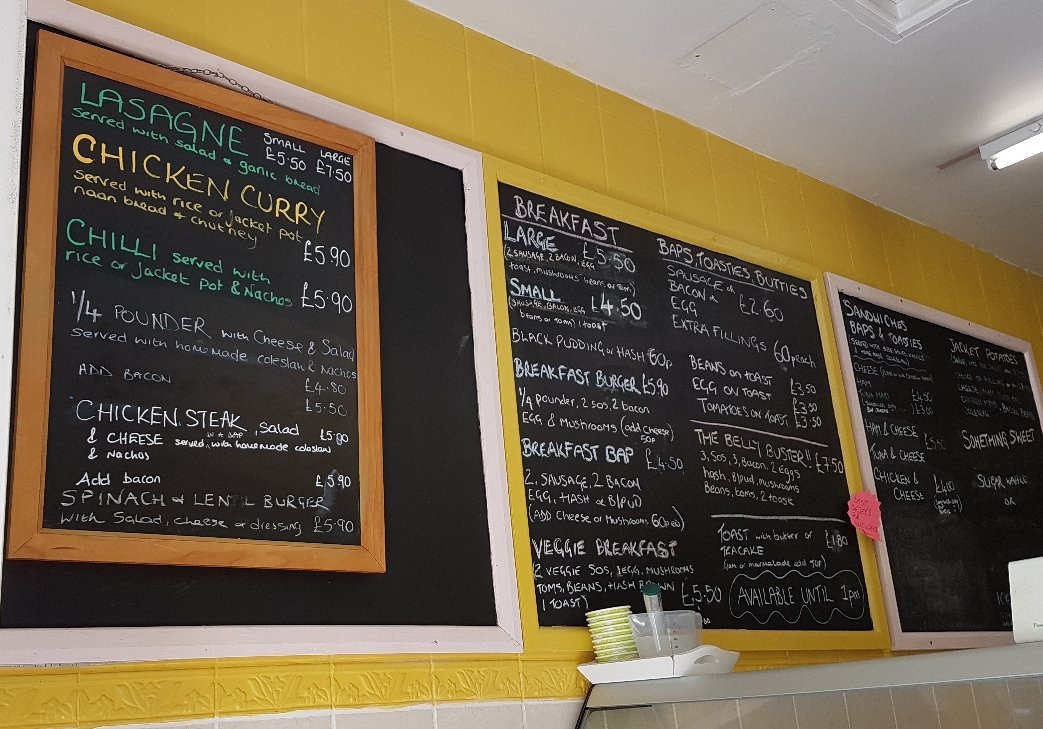 LASAGNE SMALL LARGE
served with salad & garlic bread £5.50 £7.50
CHICKEN CURRY
served with rice or jacket pot
naan bread & chutney £5.90
CHILLI served with
rice or jacket pot & Nachos £5.90
1/4 POUNDER with Cheese & Salad
served with homemade coleslaw & Nachos
£4.80
ADD BACON £5.50
CHICKEN STEAK, salad £5.00
& CHEESE served with homemade coleslaw
IN A BAP
& Nachos
Add bacon £5.90
SPINACH & LENTIL BURGER
with Salad, cheese or dressing £5.90
BREAKFAST
LARGE £5.50
(2 SAUSAGE, 2 BACON, EGG
toast, mushrooms, beans or tom)
SMALL £4.50
(SAUSAGE, BACON, EGG
beans or toms) 1 toast
BLACK PUDDING or HASH 60p
BREAKFAST BURGER £5.90
1/4 pounder, 2 sos, 2 bacon
EGG & Mushrooms (add cheese)
50p
BREAKFAST BAP £4.50
2, SAUSAGE, 2 BACON
EGG, HASH or B/PUD
(ADD Cheese or Mushrooms 60p)
VEGGIE BREAKFAST
2 VEGGIE SOS, 1 EGG, MUSHROOMS
TOMS, BEANS, HASH BROWN
1 TOAST) £5.50
BAPS, TOASTIES, BUTTIES
SAUSAGE or
BACON or £2.60
EGG
EXTRA FILLINGS 60p each
BEANS on TOAST £3.50
EGG ON TOAST £3.50
TOMATOES ON TOAST £3.50
THE BELLY BUSTER!! £7.50
3, Sos, 3, Bacon, 2 eggs
hash, B/pud, mushrooms
Beans, toms, 2 toast
TOAST with butter or £1.80
TEACAKE
(jam or marmalade add 50p)
AVAILABLE UNTIL 1pm
SANDWICHES
BAPS & TOASTIES
CHEESE
HAM
TUNA MAYO
HAM & CHEESE
TUNA & CHEESE
CHICKEN & £4.00
CHEESE
JACKET POTATOES
SOMETHING SWEET
SUGAR WAFFLE
OR